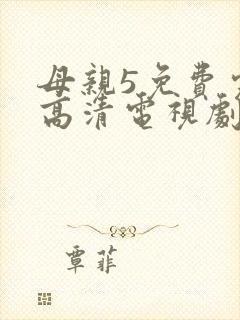 母親5免費
高清電視劇
覃菲